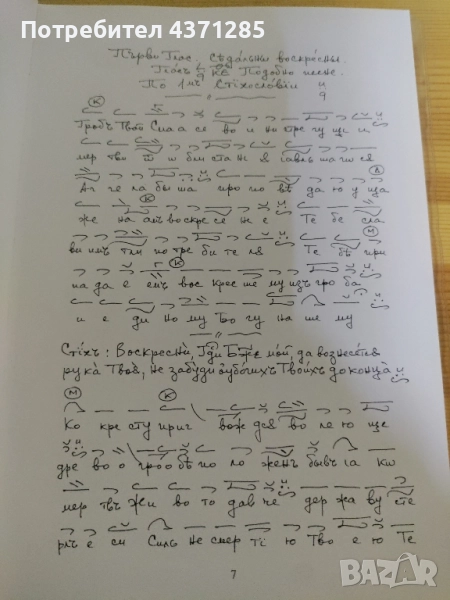 Потребител 4371285
Първо Глас. Сѣдальны воскресны.
Гласъ Подобно
По 1мъ Стіхословіи
К
Гробъ Твой Спа а се во и но стре гу щи и
мер тво и бли ста
А
Ан ге ла бы ша про по вѣ да ю у ща
К
же на мъ воскре се ні е Те бе сла
М
ви имъ тли по тре би те ля Те бѣ при
К
па да е емъ вос крес ше му изъ гро ба
и е ди но му Бо гу на ше му
Стіхъ: Воскресни, Гди Бже мой, да вознесется
рука Твоя, не забуди убогихъ Твоихъ до конца
М К
Ко кре сту приг вож дся во ле ю ще
дре во о гроо бѣ по ло женъ бывч
мер твъ жи во то дав че дер жа ву сте
рлъ е си Силь не смер ті ю Тво е ю Те
7
BAZAR